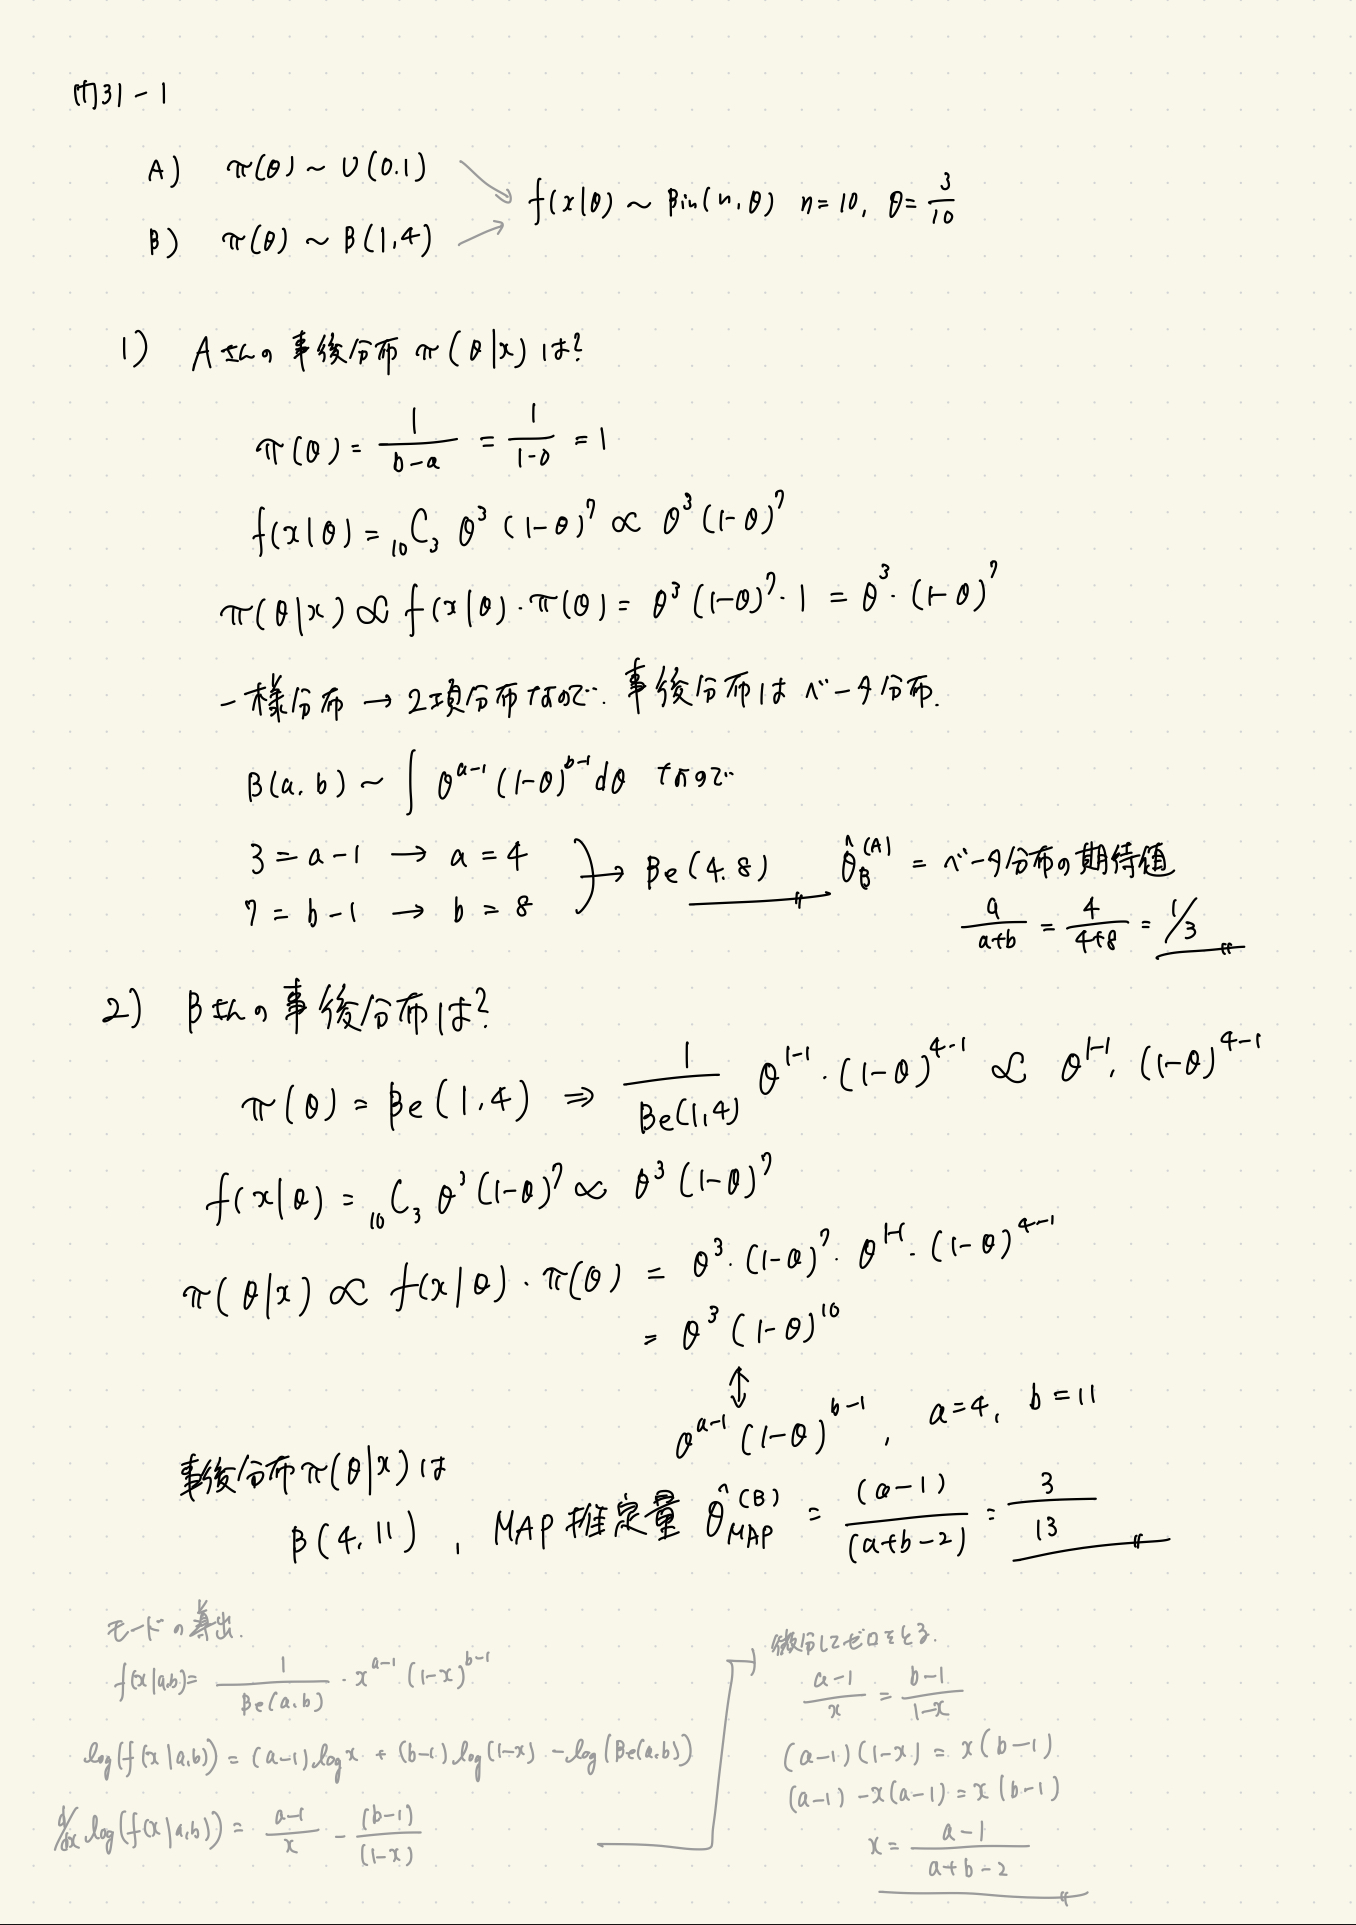 例31-1
A) π(θ) ~ U(0.1)
B) π(θ) ~ B(1,4)
f(x|θ) ~ Bin(n,θ) n=10, θ=3/10
1) Aさんの事後分布 π(θ|x)は?
π(θ) = 1/(b-a) = 1/(1-0) = 1
f(x|θ) = ₁₀C₃ θ³(1-θ)⁷ ∝ θ³(1-θ)⁷
π(θ|x) ∝ f(x|θ)・π(θ) = θ³(1-θ)⁷・1 = θ³・(1-θ)⁷
一様分布 → 2項分布なので. 事後分布は ベータ分布.
B(a.b) ~ ∫ θ^{a-1}(1-θ)^{b-1}dθ なので
3 = a-1 → a = 4
7 = b-1 → b = 8
→ Be(4.8)
θ̂_B^{(A)} = ベータ分布の期待値
a/(a+b) = 4/(4+8) = 1/3
2) Bさんの事後分布は?
π(θ) = Be(1,4) ⇒ 1/Be(1,4) θ^{1-1}・(1-θ)^{4-1} ∝ θ^{1-1}・(1-θ)^{4-1}
f(x|θ) = ₁₀C₃ θ³(1-θ)⁷ ∝ θ³(1-θ)⁷
π(θ|x) ∝ f(x|θ)・π(θ) = θ³・(1-θ)⁷・θ^{1-1}・(1-θ)^{4-1}
= θ³(1-θ)¹⁰
↕
θ^{a-1}(1-θ)^{b-1}, a=4, b=11
事後分布π(θ|x)は
B(4,11), MAP推定量 θ̂_{MAP}^{(B)} = (a-1)/(a+b-2) = 3/13
モードの導出.
f(x|a,b)= 1/Be(a.b)・x^{a-1}(1-x)^{b-1}
log(f(x|a,b)) = (a-1)log x + (b-1)log(1-x) - log(Be(a.b))
d/dx log(f(x|a,b)) = (a-1)/x - (b-1)/(1-x)
微分してゼロをとる.
(a-1)/x = (b-1)/(1-x)
(a-1)(1-x) = x(b-1)
(a-1)-x(a-1) = x(b-1)
x = (a-1)/(a+b-2)